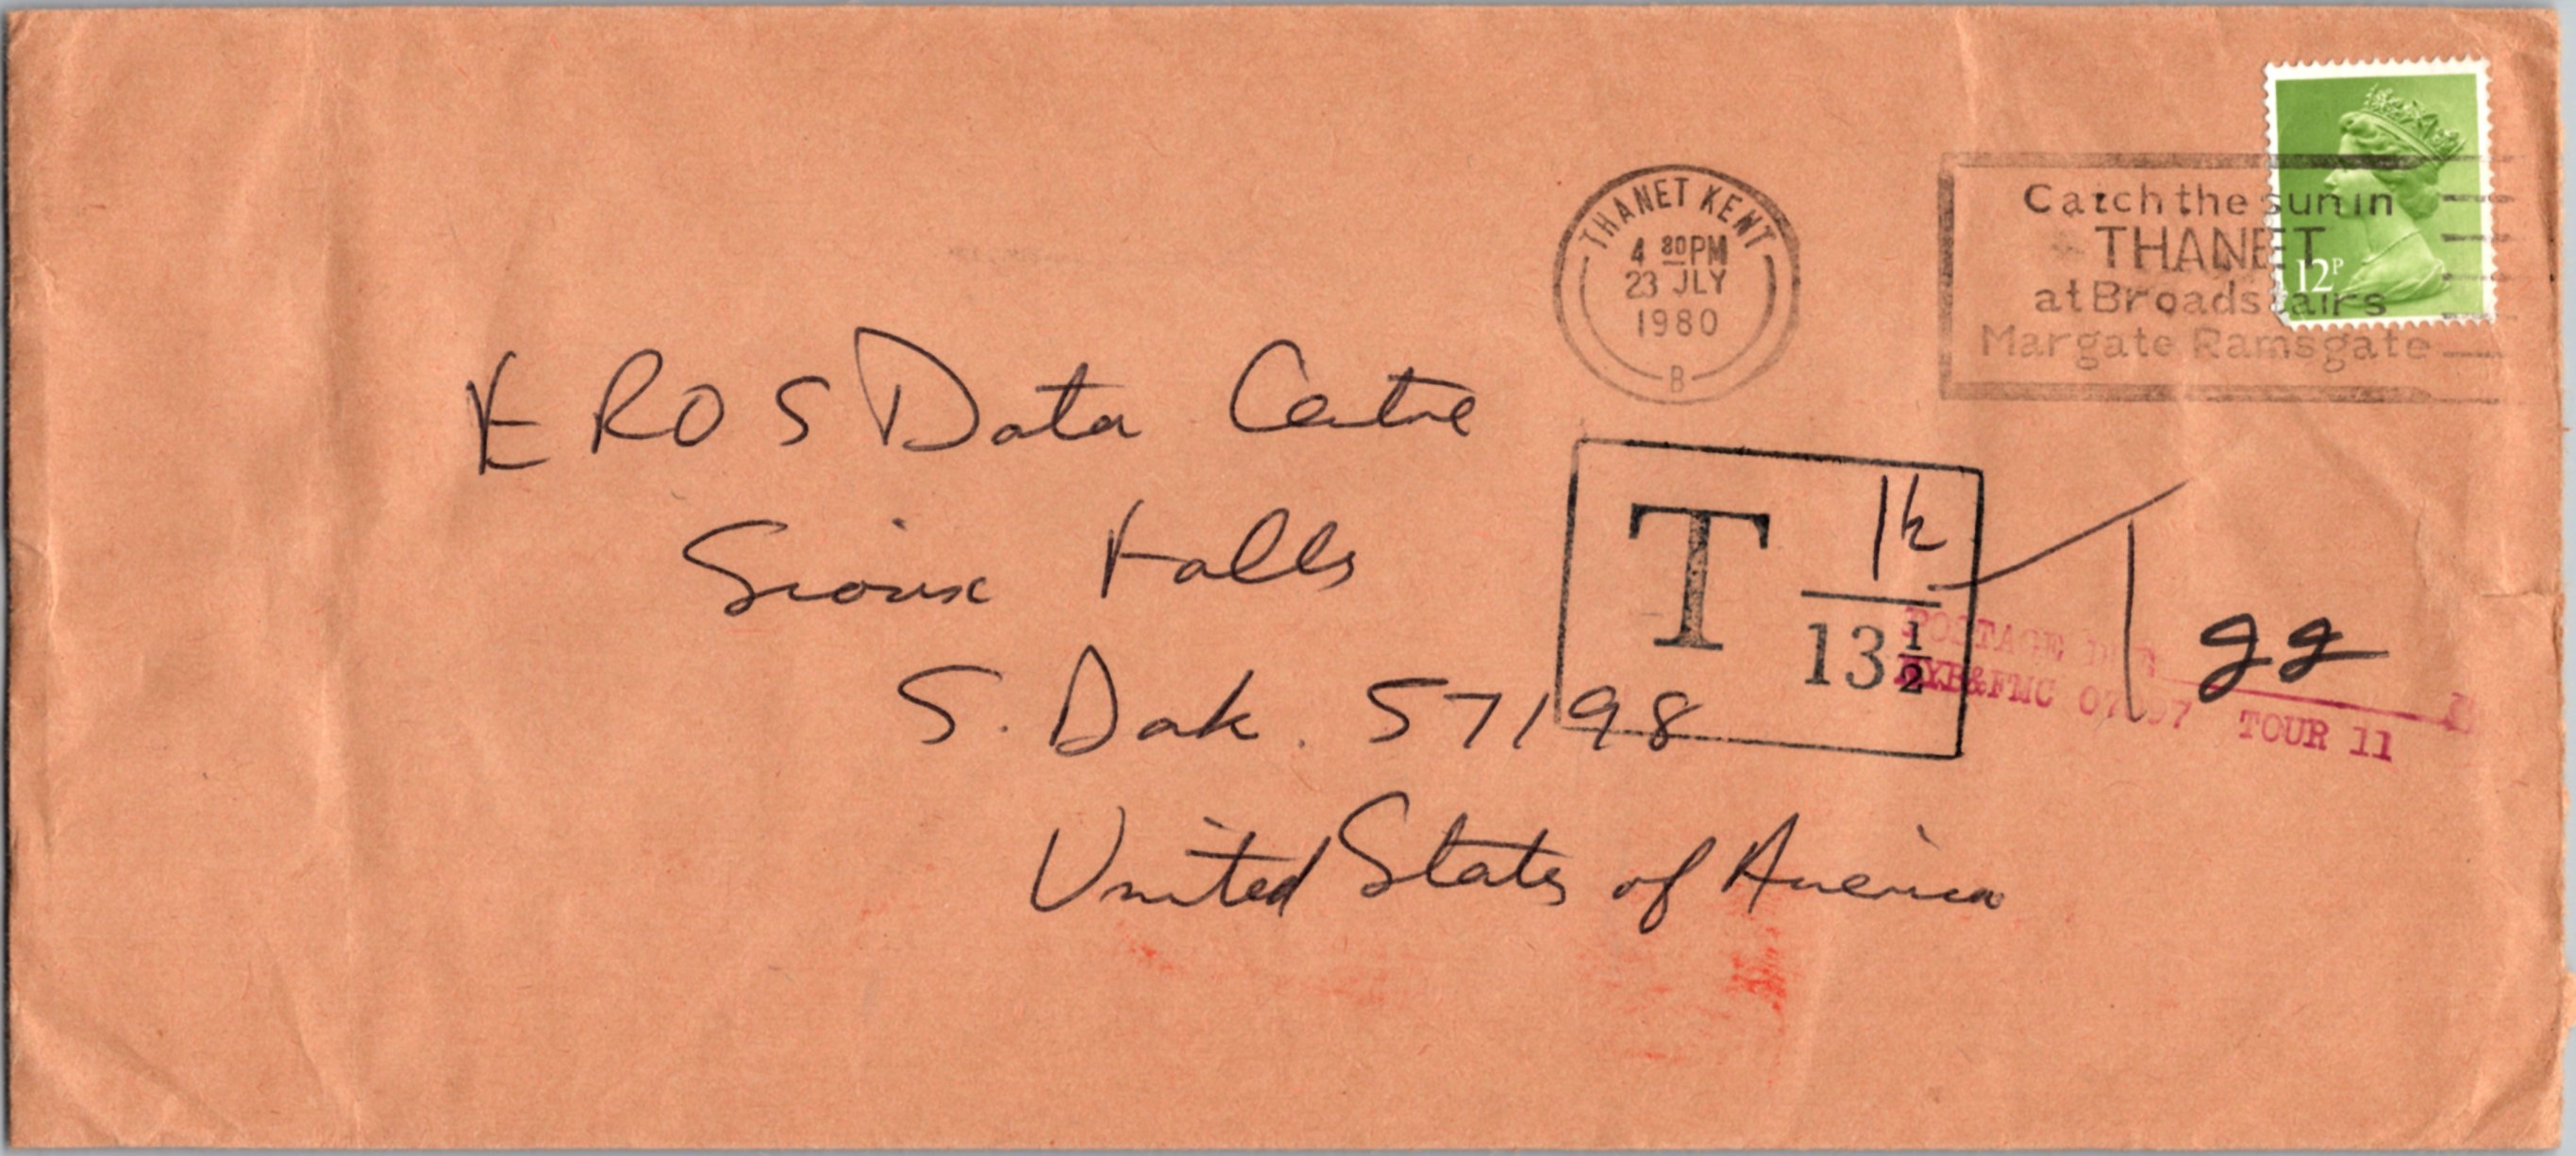 THANET KENT
4 30PM
23 JLY
1980
B
Catch the sun in
THANET
at Broadstairs
Margate Ramsgate
12P
EROS Data Centre
Sioux Falls
S. Dak. 57198
United States of America
T
13 1/2
POSTAGE DUE
TOUR 11